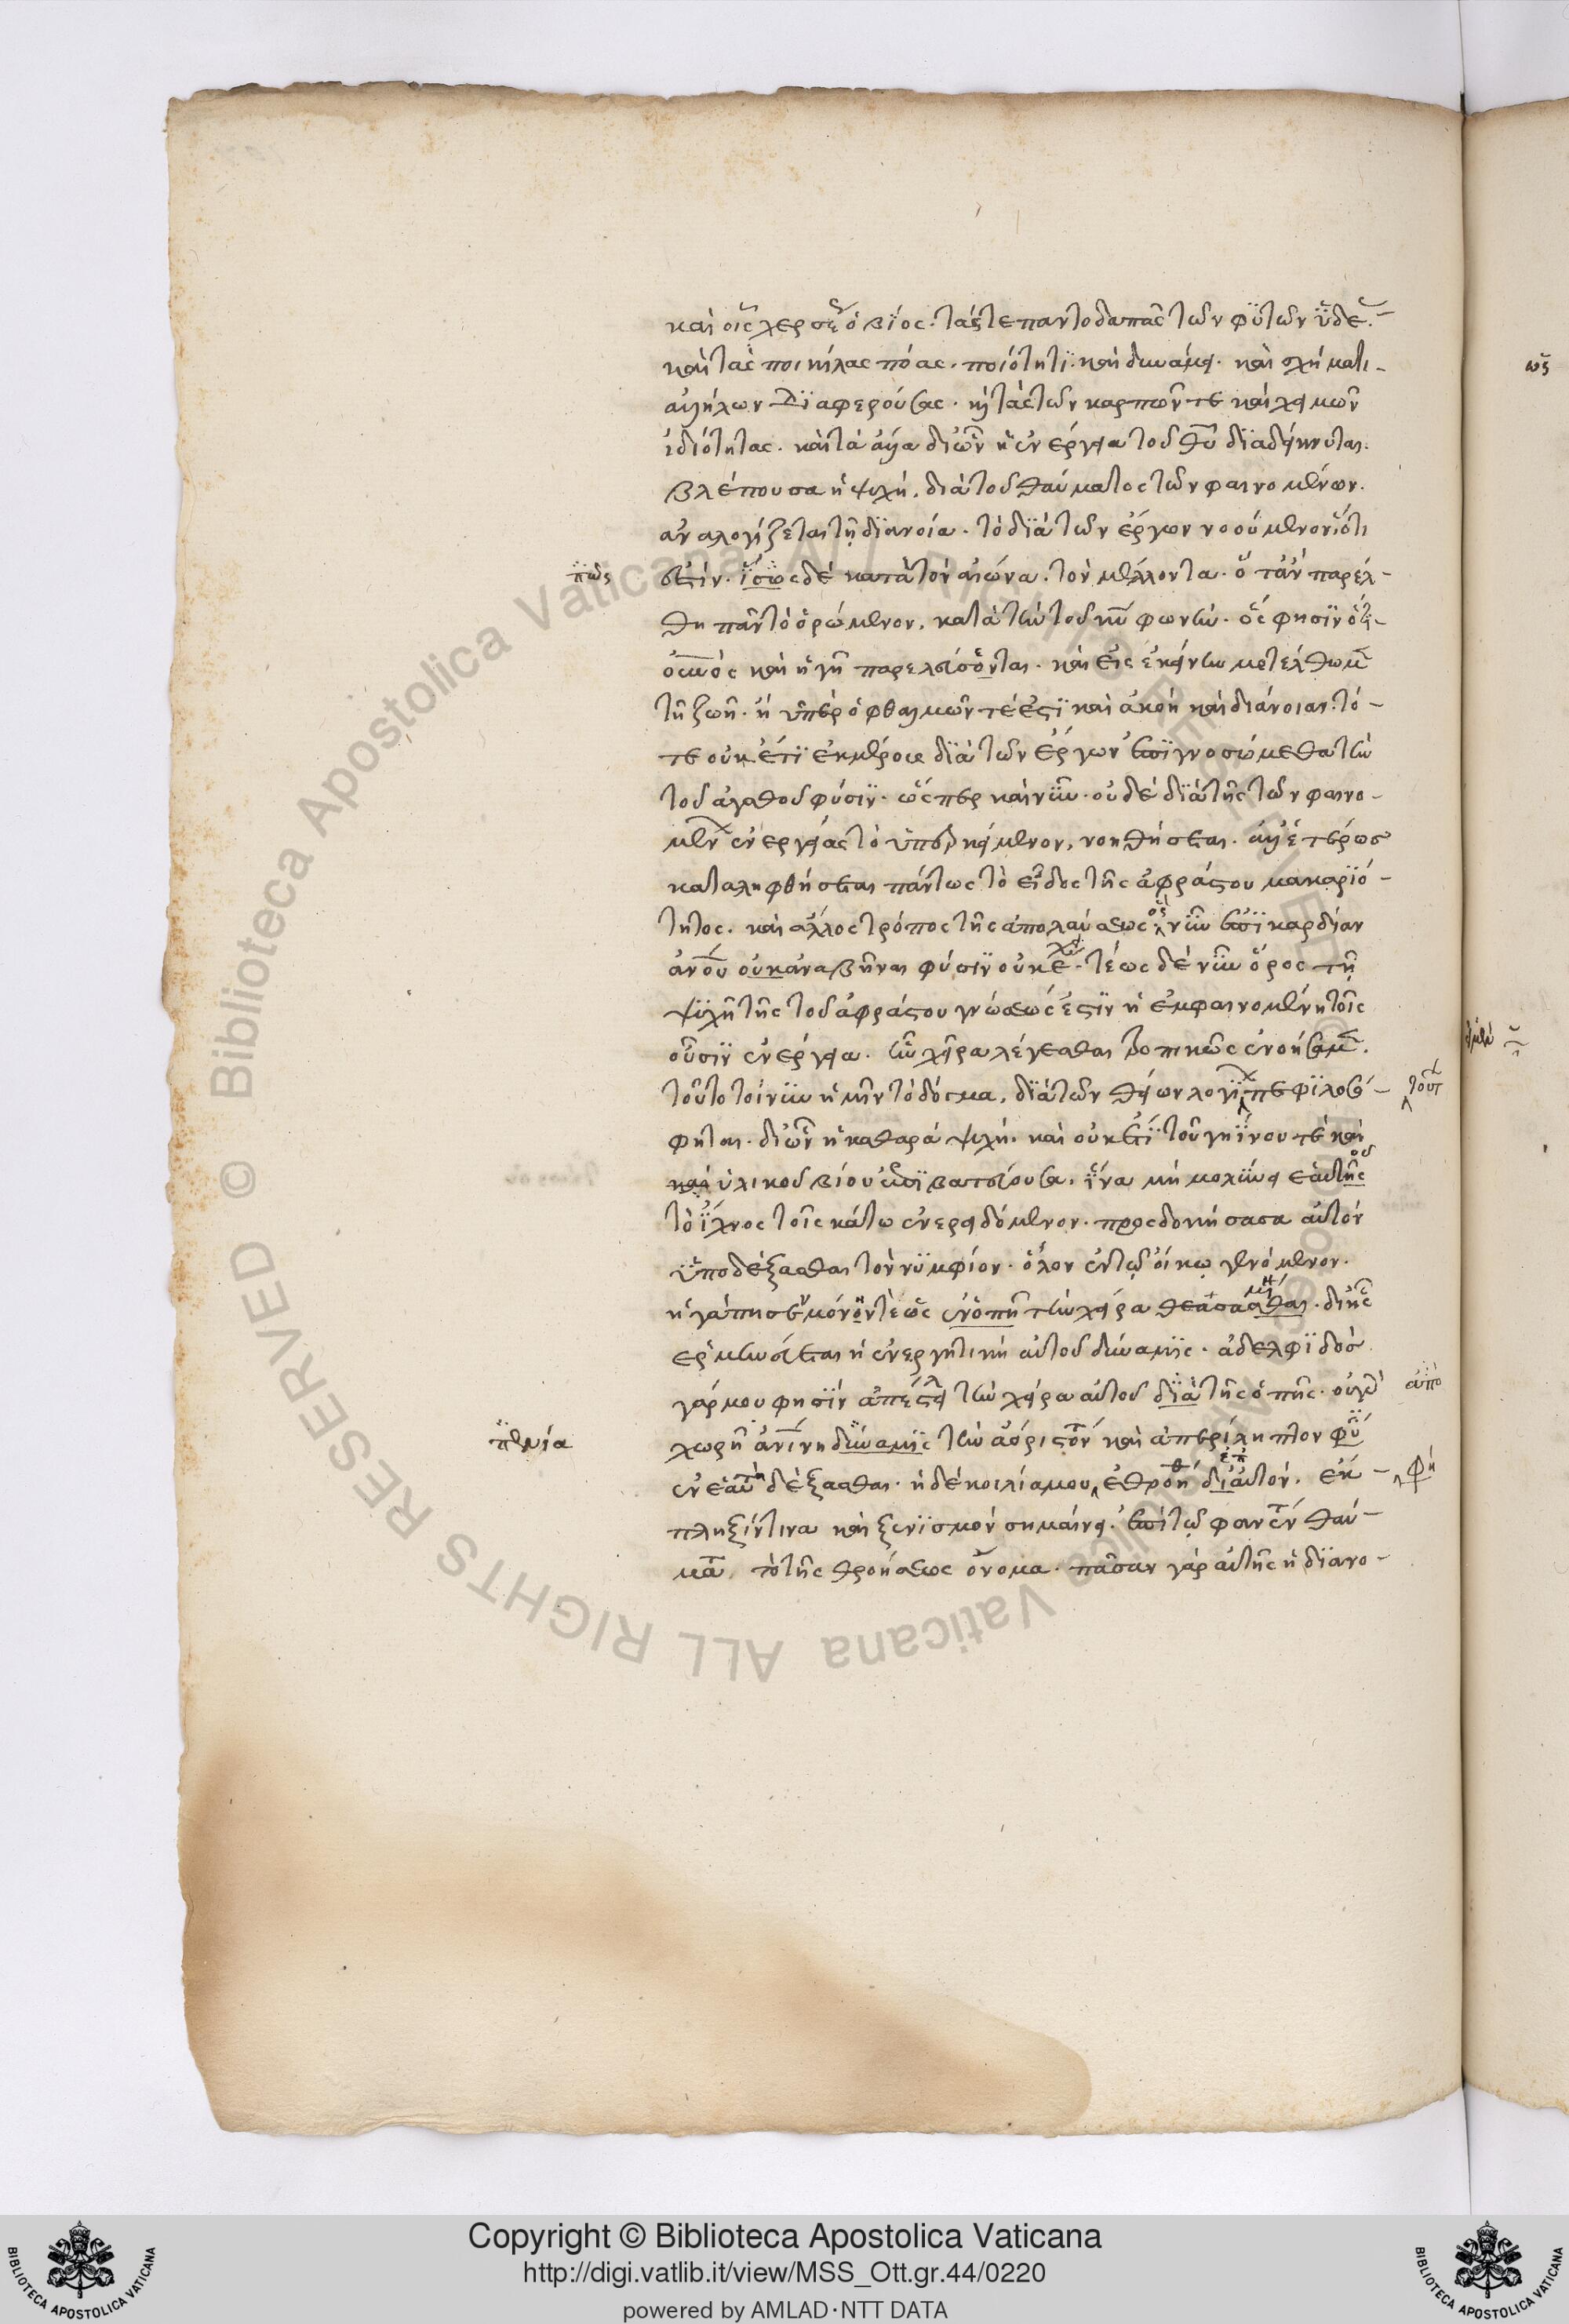 καὶ οἷς χερσαῖος ὁ βίος· τάς τε παντοδαπὰς τῶν φυτῶν ἰδέας·
καὶ τὰς ποικίλας πόας· ποιότητι καὶ δυνάμει· καὶ σχήματι
ἀλλήλων διαφερούσας· καὶ τὰς τῶν καρπῶν τε καὶ χυμῶν
ἰδιότητας· καὶ τὰ ἄλλα δι ὧν ἡ ἐνέργεια τοῦ θυ διαδείκνυται·
βλέπουσα ἡ ψυχή, διὰ τοῦ θαύματος τῶν φαινομένων·
ἀναλογίζεται τῇ διανοία· τὸ διὰ τῶν ἔργων νοούμενον ὅτι
πῶς
ἐστίν· ἴσως δὲ κατὰ τὸν αἰώνα· τὸν μέλλοντα· ὅταν παρέλ-
θη πᾶν τὸ ὁρώμενον, κατὰ τὴν τοῦ κυ φωνήν· ὅς φησιν ὅτι
ὁ οὐνὸς καὶ ἡ γῆ παρελεύσονται· καὶ εἰς ἐκείνην μετέλθωμεν
τὴν ζωήν· ἣ ὑπὲρ ὀφθαλμῶν τέ ἐστι καὶ ἀκοὴν καὶ διάνοιαν· τό-
τε οὐκέτι ἐκ μέρους διὰ τῶν ἔργων ἐπιγνοσώμεθα τὴν
τοῦ ἀγαθοῦ φύσιν· ὥσπερ καὶ νῦν· οὐδὲ διὰ τῆς τῶν φαινο-
μένων ἐνεργείας τὸ ὑπερκείμενον, νοηθήσεται· ἀλλ ἑτέρως
καταληφθήσεται πάντως τὸ εἶδος τῆς ἀφράστου μακαριό-
τητος· καὶ ἄλλος τρόπος τῆς ἀπολαύσεως ὃς νῦν ἐπὶ καρδίαν
ἀνου οὐκ ἀναβῆναι φύσιν οὐκ ἔχει· τέως δὲ νῦν ὅρος τῇ
ψυχῇ τῆς τοῦ ἀφράστου γνώσεώς ἐστιν ἡ ἐμφαινομένη τοῖς
οὖσιν ἐνέργεια· ἣν χεῖρα λέγεσθαι τροπικῶς ἐνοήσαμεν·
τοῦτο τοίνυν ἡμῖν τὸ δόγμα, διὰ τῶν θείων λογίων πεφιλοσό-
τούτων
φηται· δι ὧν ἡ καθαρὰ ψυχή· καὶ οὐκέτι τοῦ γηΐνου τε καὶ
καὶ ὑλικοῦ βίου ἐπιβατεύουσα, ἵνα μὴ μολύνῃ ἑαυτῆς
τὸ ἴχνος τοῖς κάτω ἐνερειδόμενον· προσδοκήσασα αὐτὸν
ὑποδέξασθαι τὸν νυμφίον· ὅλον ἐν τῷ οἴκῳ γενόμενον·
ἠγάπησε μόνον τέως ἐν ὀπῇ τὴν χεῖρα θεάσασθαι· δι ἧς
ἑρμηνεύεται ἡ ἐνεργητικὴ αὐτοῦ δύναμις· ἀδελφιδοῦς
γάρ μου φησὶν ἀπέστειλε τὴν χεῖρα αὐτοῦ διὰ τῆς ὀπῆς· οὐ γὰρ
ἀπὸ
πενία
χωρεῖ ἀνίνη δύναμις τὴν ἀόριστόν καὶ ἀπερίληπτον φύσιν
ἐν ἑαυτῇ δέξασθαι· ἡ δὲ κοιλία μου, ἐθροήθη ἐπ αὐτόν· ἔκ-
φη
πληξίν τινα καὶ ξενισμὸν σημαίνει· ἐπὶ τῷ φανέντι θαύ-
ματι, τὸ τῆς θροήσεως ὄνομα· πᾶσαν γὰρ αὐτῆς ἡ διανο-